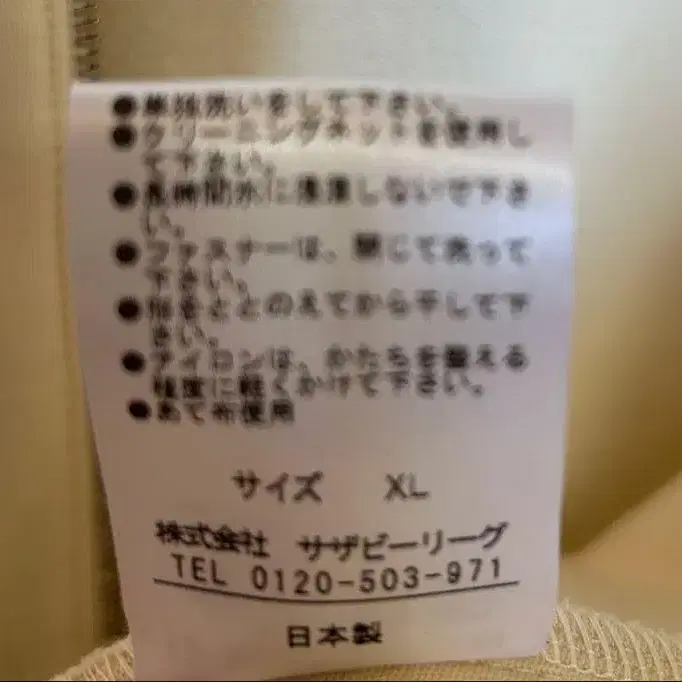 ●単独洗いをして下さい。
●クリーニングネットを使用し
て下さい。
●長時間水に浸漬しないで下さ
い。
●ファスナーは、閉じて洗って
下さい。
●形をととのえてから干して下
さい。
●アイロンは、かたちを整える
程度に軽くかけて下さい。
●あて布使用
サイズ XL
株式会社 サザビーリーグ
TEL 0120-503-971
日本製